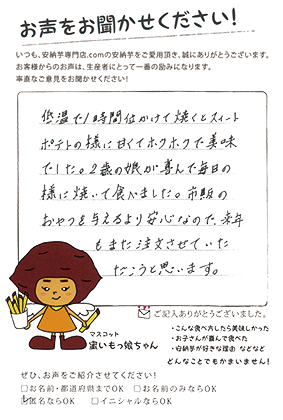 お声をお聞かせください!
いつも、安納芋専門店.comの安納芋をご愛用頂き、誠にありがとうございます。
お客様からのお声は、生産者にとって一番の励みになります。
率直なご意見をお聞かせください!
低温で1時間位かけて焼くとスイート
ポテトの様に甘くてホクホクで美味
でした。2歳の娘が喜んで毎日の
様に焼いて食べました。市販の
おやつを与えるより安心なので、来年
もまた注文させていた
だこうと思います。
ご記入ありがとうございました。
・こんな食べ方したら美味しかった
・お子さんが喜んで食べた
・安納芋が好きな理由 などなど
どんなことでもかまいません!
マスコット
蜜いもっ娘ちゃん
ぜひ、お声をご紹介させてください!
□お名前・都道府県までOK □お名前のみならOK
匿名ならOK □イニシャルならOK